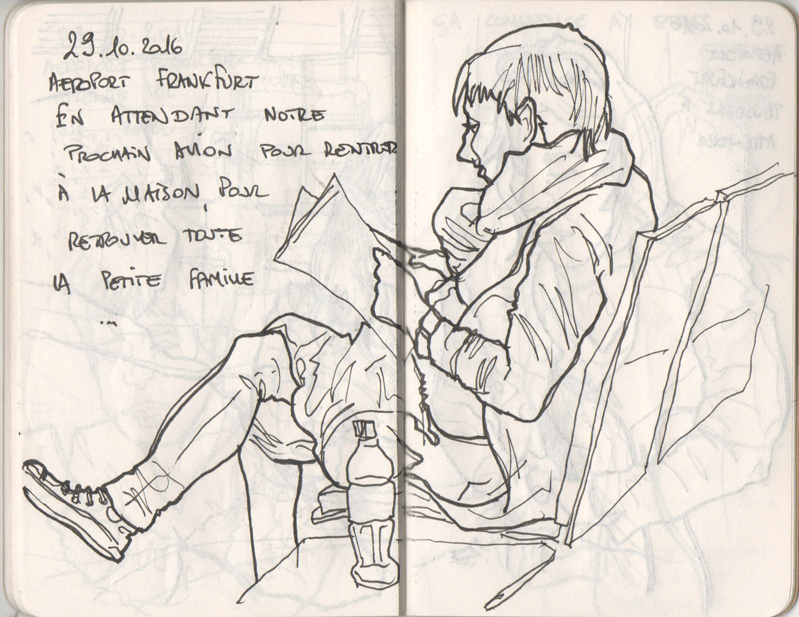 29.10.2016
AEROPORT FRANKFURT
EN ATTENDANT NOTRE
PROCHAIN AVION POUR RENTRER
À LA MAISON, POUR
RETROUVER TOUTE
LA PETITE FAMILLE
...